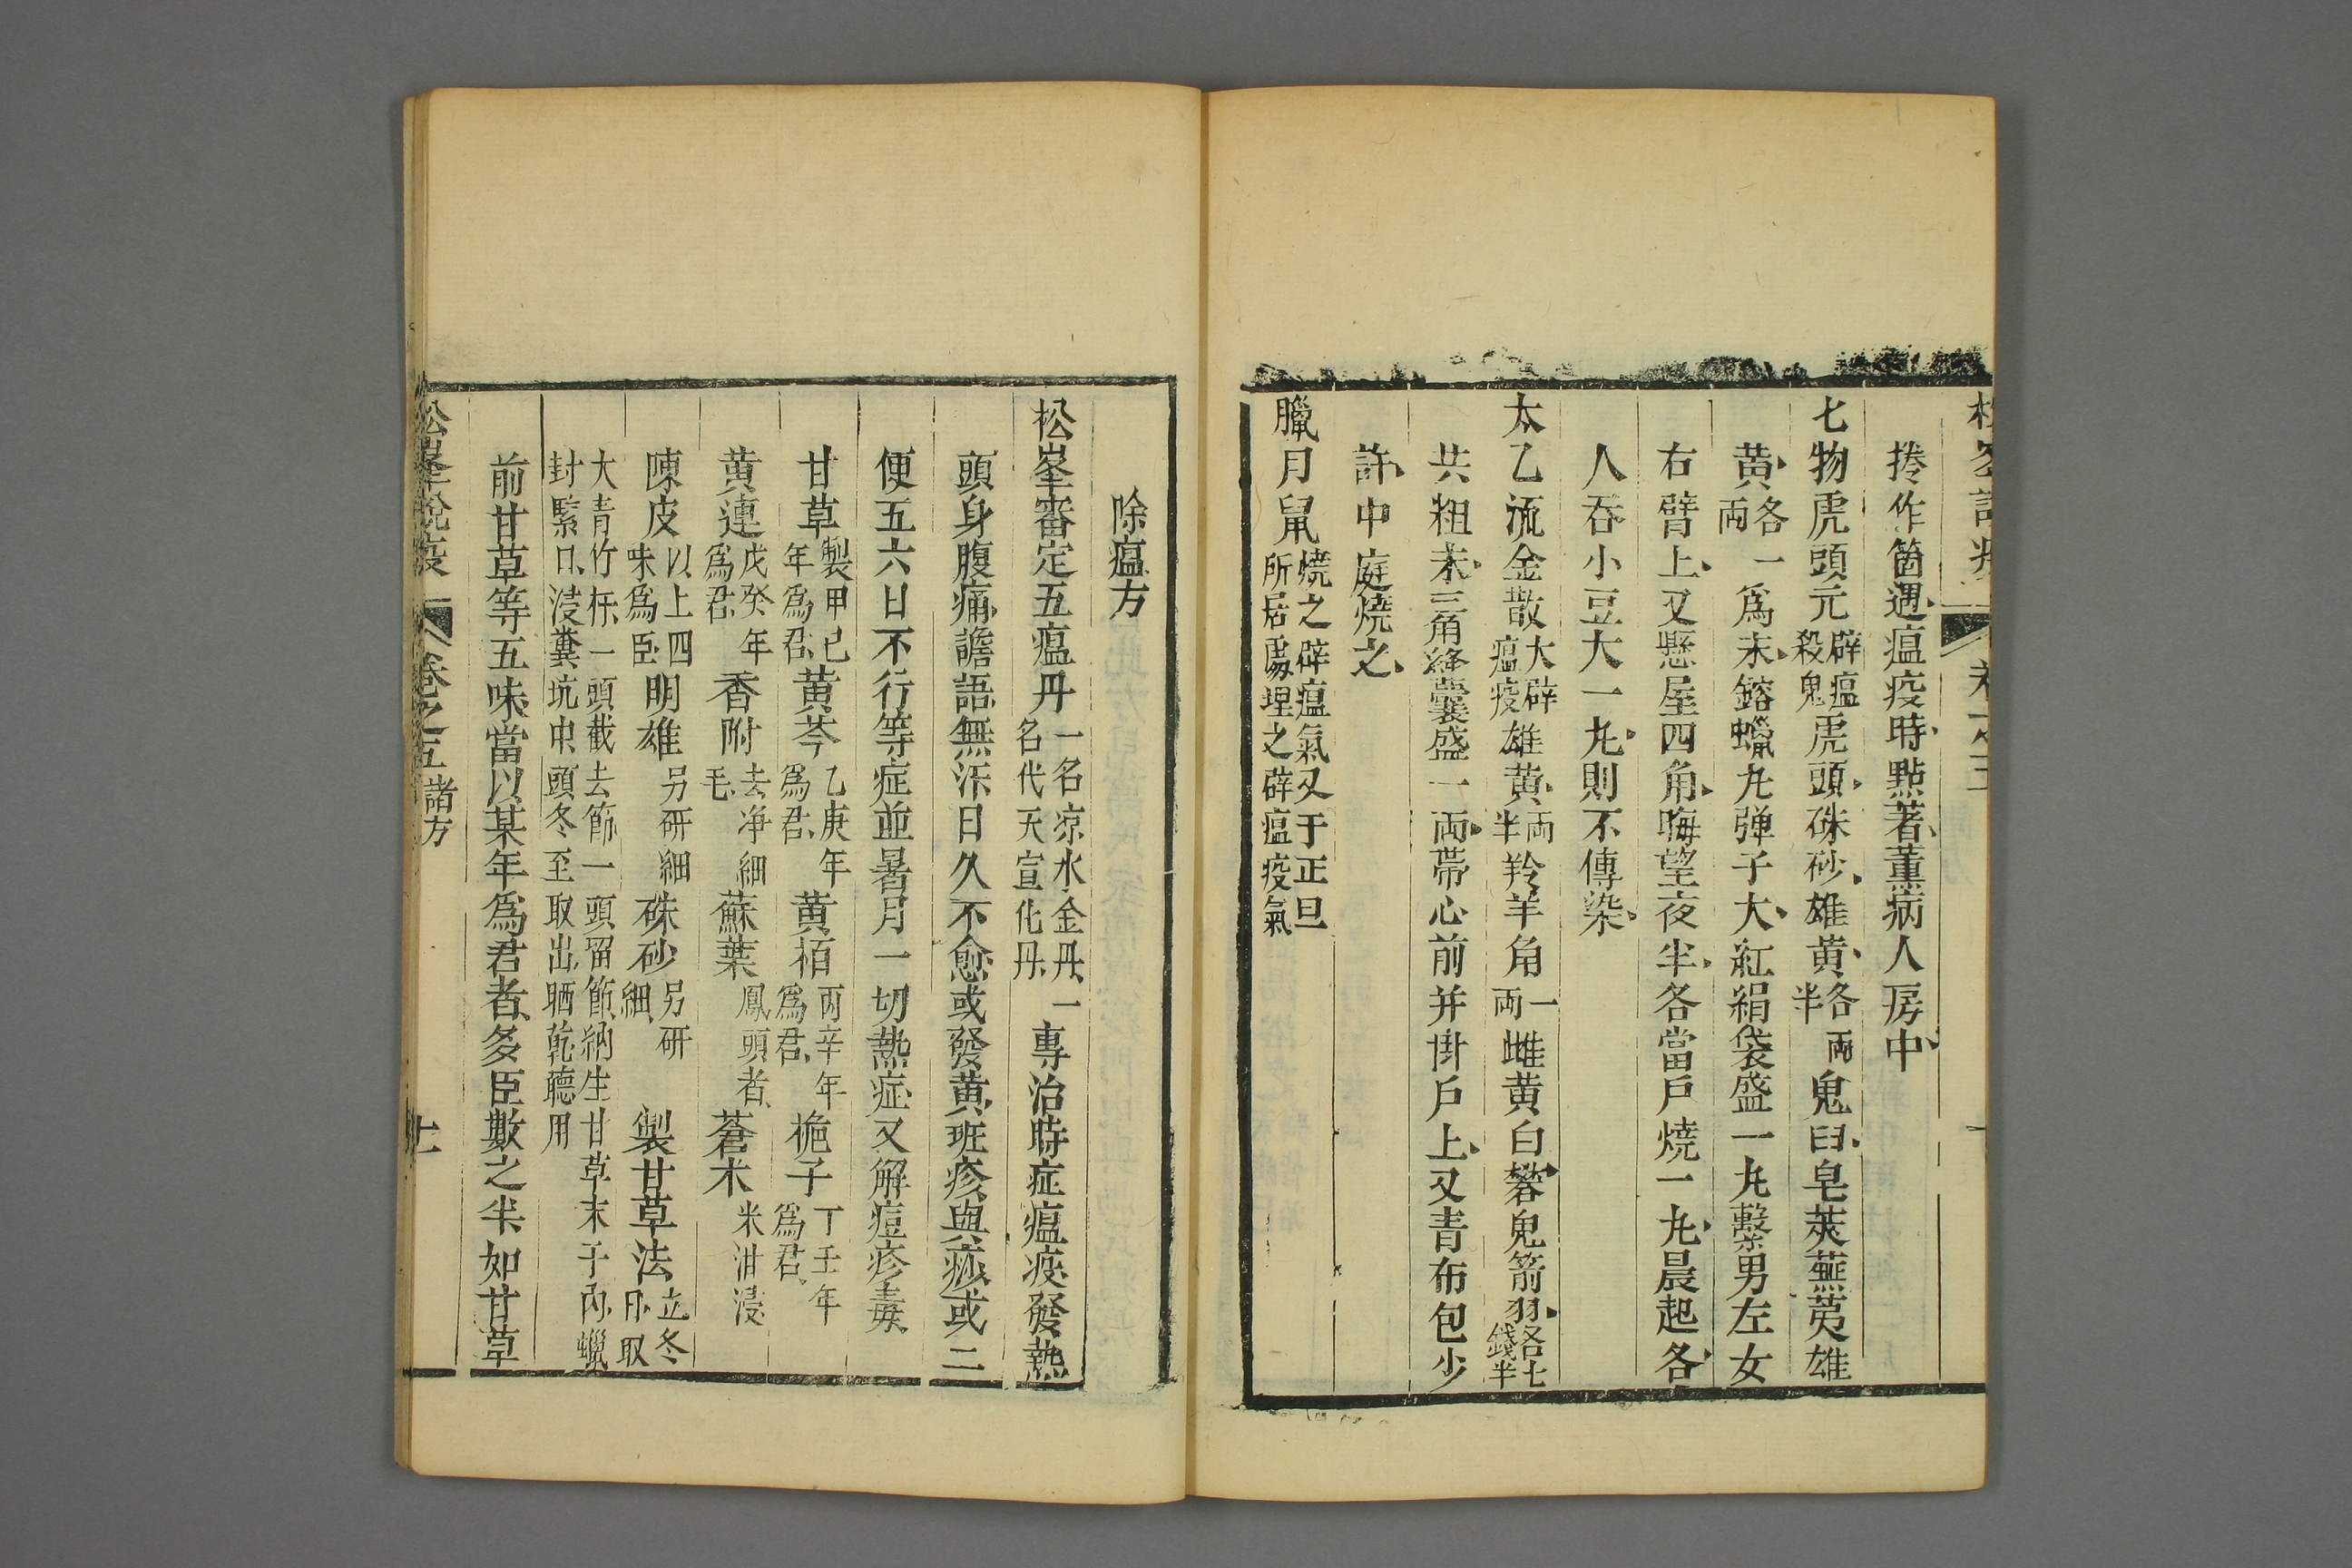 捲作箇遇瘟疫時點著薰病人房中
七物虎頭元辟瘟殺鬼虎頭硃砂雄黄各兩半鬼臼皂莢蕪荑雄
黄各一兩爲末鎔蠟丸弹子大紅絹袋盛一丸繫男左女
右臂上又懸屋四角晦望夜半各當戶燒一丸晨起各
人吞小豆大一丸則不傳染
太乙流金散大辟瘟疫雄黄兩半羚羊角一兩雌黄白礬鬼箭羽各七錢半
共粗末三角絳囊盛一兩帶心前并掛戶上又青布包少
許中庭燒之
臘月鼠燒之辟瘟氣又于正旦所居處埋之辟瘟疫氣
除瘟方
松峯審定五瘟丹一名凉水金丹一名代天宣化丹專治時症瘟疫發熱
頭身腹痛譫語無汗日久不愈或發黄班疹與痧或二
便五六日不行等症並暑月一切熱症又解痘疹毒
甘草製甲己年爲君黄芩乙庚年爲君黄栢丙辛年爲君梔子丁壬年爲君
黄連戊癸年爲君香附去净細毛蘇葉鳳頭者蒼术米泔浸
陳皮以上四味爲臣明雄另研細硃砂另研細製甘草法立冬日取
大青竹杯一頭截去節一頭留節納生甘草末于内蠟
封緊口浸糞坑中頭冬至取出晒乾聽用
前甘草等五味當以某年爲君者多臣數之半如甘草
松峯說疫
卷之五諸方
十一